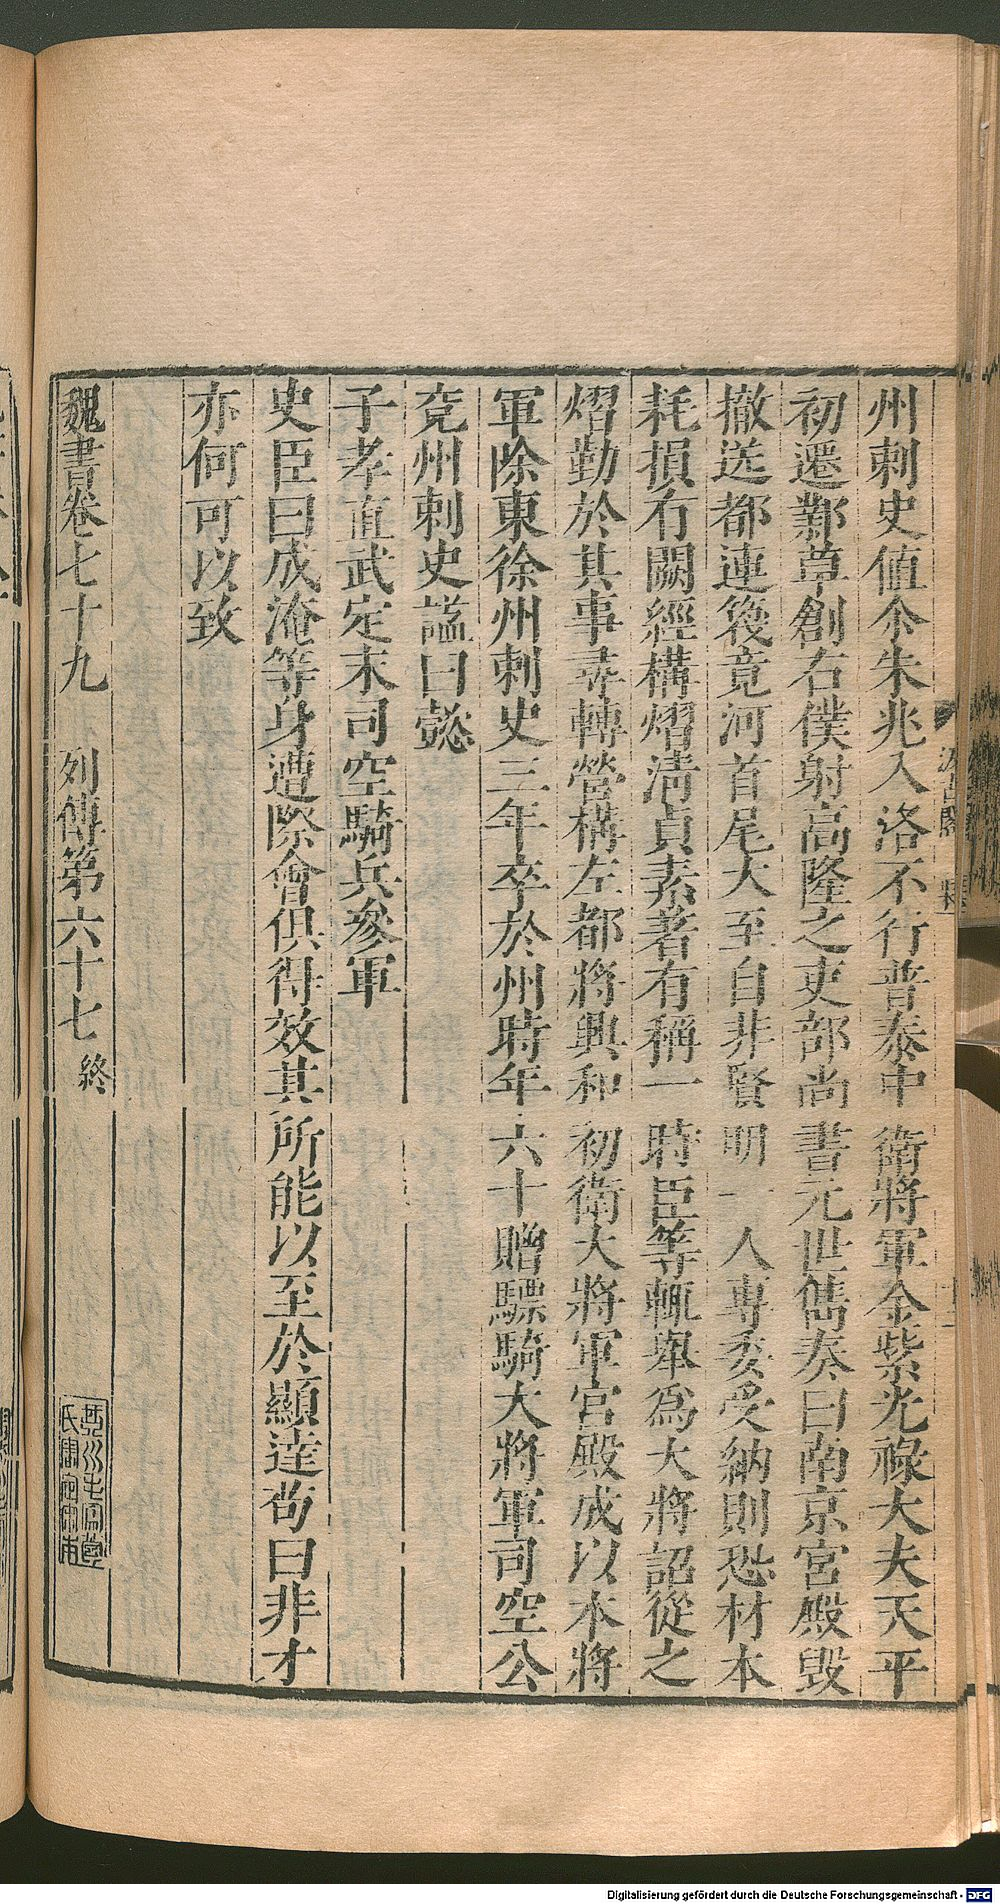 州刺史值尒朱兆入洛不行普泰中衛將軍金紫光祿大夫天平
初遷鄴草創右僕射高隆之吏部尚書元世儁奏曰南京宮殿毀
撤送都連筏竟河首尾大至自非賢明一人專委受納則恐材木
耗損有闕經構熠清貞素著有稱一時臣等輒舉為大將詔從之
熠勤於其事尋轉營構左都將興和初衛大將軍宮殿成以本將
軍除東徐州刺史三年卒於州時年六十贈驃騎大將軍司空公
兗州刺史謚曰懿
子孝直武定末司空騎兵參軍
史臣曰成淹等身遭際會俱得效其所能以至於顯達苟曰非才
亦何可以致
魏書卷七十九 列傳第六十七 終
Digitalisierung gefördert durch die Deutsche Forschungsgemeinschaft - DFG